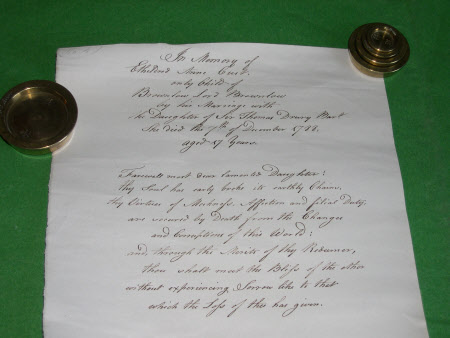 In Memory of
Etheldred Anne Cust,
only Child of
Brownlow Lord Brownlow
by his Marriage with
the Daughter of Sir Thomas Drury Bart
She died the 7th of December 1788.
aged 17 Years.
Farewell most dear lamented Daughter:
thy Soul has early broke its earthly Chains,
thy Virtues of Meekness, Affection and filial Duty,
are secured by Death from the Changes
and Corruptions of this World:
and, through the Merits of thy Redeemer,
thou shalt meet the Bliss of the other
without experiencing Sorrow like to that
which the Loss of thee has given.